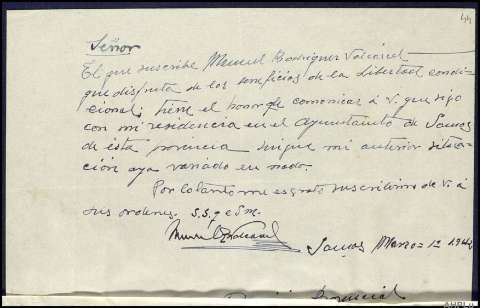 44
Señor
El que suscribe Manuel Rodriguez Valcarcel
que disfruta de los beneficios de la libertad condi-
cional; tiene el honor de comunicar á V. que sigo
con mi residencia en el Ayuntamito de Samos
de esta provincia sin que mi anterior situa-
ción aya variado en nada.
Por lo tanto me es grato suscribirme de V. á
sus ordenes. S.S. q e S m.
Manuel R Valcarcel
Samos Marzo = 1º 1944
Provincial
AHPLu